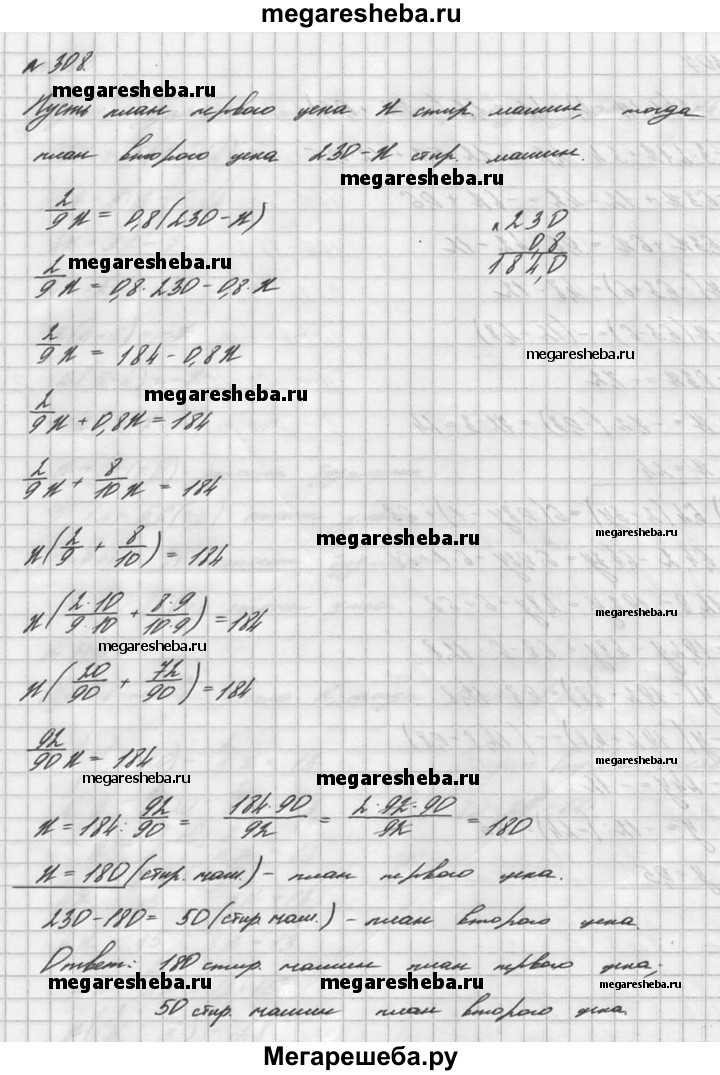 megaresheba.ru
№ 308.
megaresheba.ru
Пусть план первого цеха x стир. машин, тогда
план второго цеха 230-x стир. машин.
megaresheba.ru
2/9 x = 0,8(230-x)
×230
0,8
184,0
megaresheba.ru
2/9 x = 0,8·230-0,8·x
2/9 x = 184-0,8x
megaresheba.ru
megaresheba.ru
2/9 x + 0,8x = 184
2/9 x + 8/10 x = 184
megaresheba.ru
megaresheba.ru
x(2/9 + 8/10) = 184
x(2·10/9·10 + 8·9/10·9) = 184
megaresheba.ru
megaresheba.ru
x(20/90 + 72/90) = 184
92/90 x = 184
megaresheba.ru
megaresheba.ru
megaresheba.ru
x = 184 : 92/90 = 184·90/92 = 2·92·90/92 = 180
x = 180 (стир. маш.) - план первого цеха.
230-180 = 50 (стир. маш.) - план второго цеха.
Ответ: 180 стир. машин план первого цеха;
megaresheba.ru
megaresheba.ru
megaresheba.ru
50 стир. машин план второго цеха.
Мегарешеба.ру